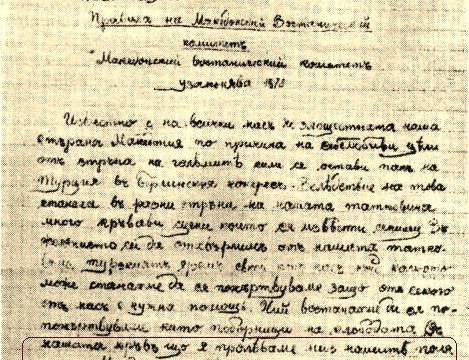 Правила на Македонский Востанический
комитетъ
"Македонский востанический комитетъ
узаконява 1878
Известно е на всички насъ че злощастната наша
страна Македония по причина на себелюбиви цѣли
отъ стрѣна на големитѣ сили си остави пакъ на
Турция въ Берлинския конгресъ. Вследствие на това
станаха въ разни стрѣни на нашата татковина
много крьвави сцени които
да отхвърлимъ отъ нашата татко-
вина турскиятъ яремъ отъ насъ
може станалъ да се покъртвуваме защо отъ секого
отъ насъ е нужна помощь. Ний востанали да се по-
покъртвуваме като поборници на слободата
нашата кръвъ що я проливаме низъ нашитѣ поля